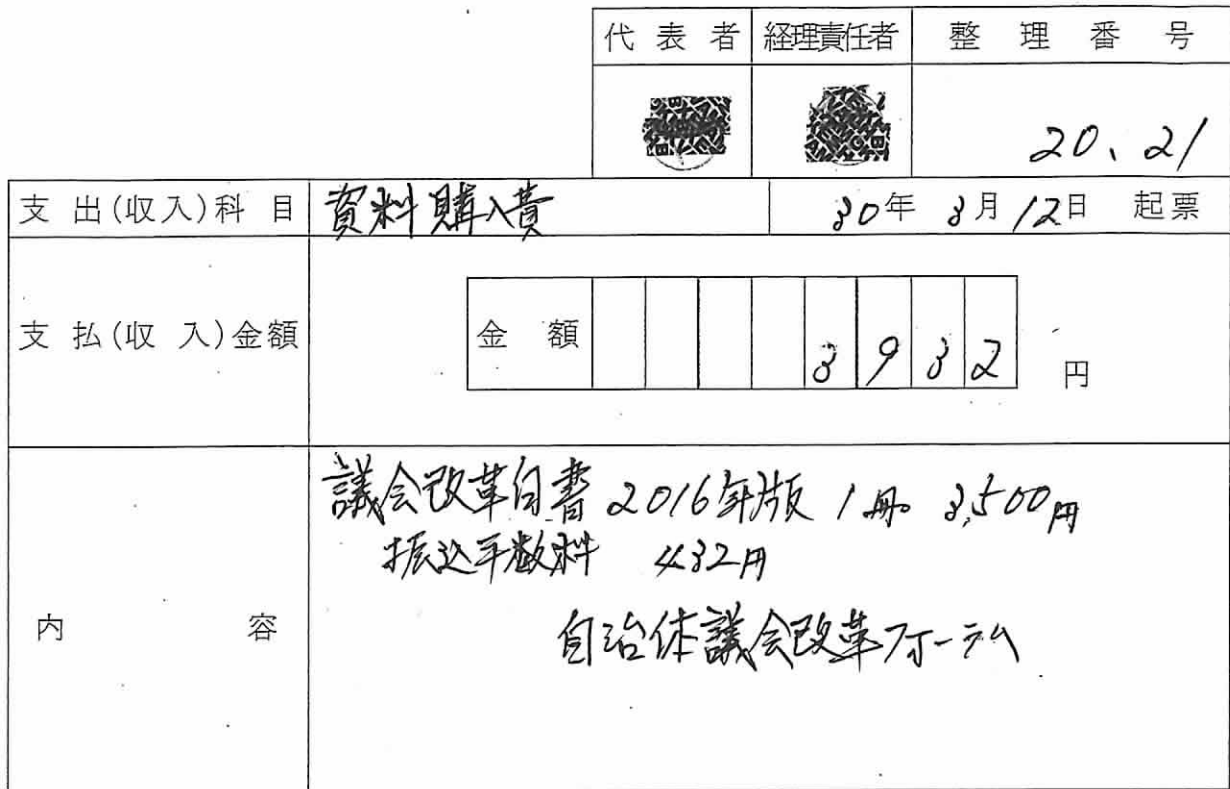 代表者 経理責任者 整理番号
20、21
支出(収入)科目 資料購入費 30年 3月 12日 起票
支払(収入)金額 金額 3932 円
議会改革白書 2016年版 1冊 3,500円
振込手数料 432円
内容 自治体議会改革フォーラム